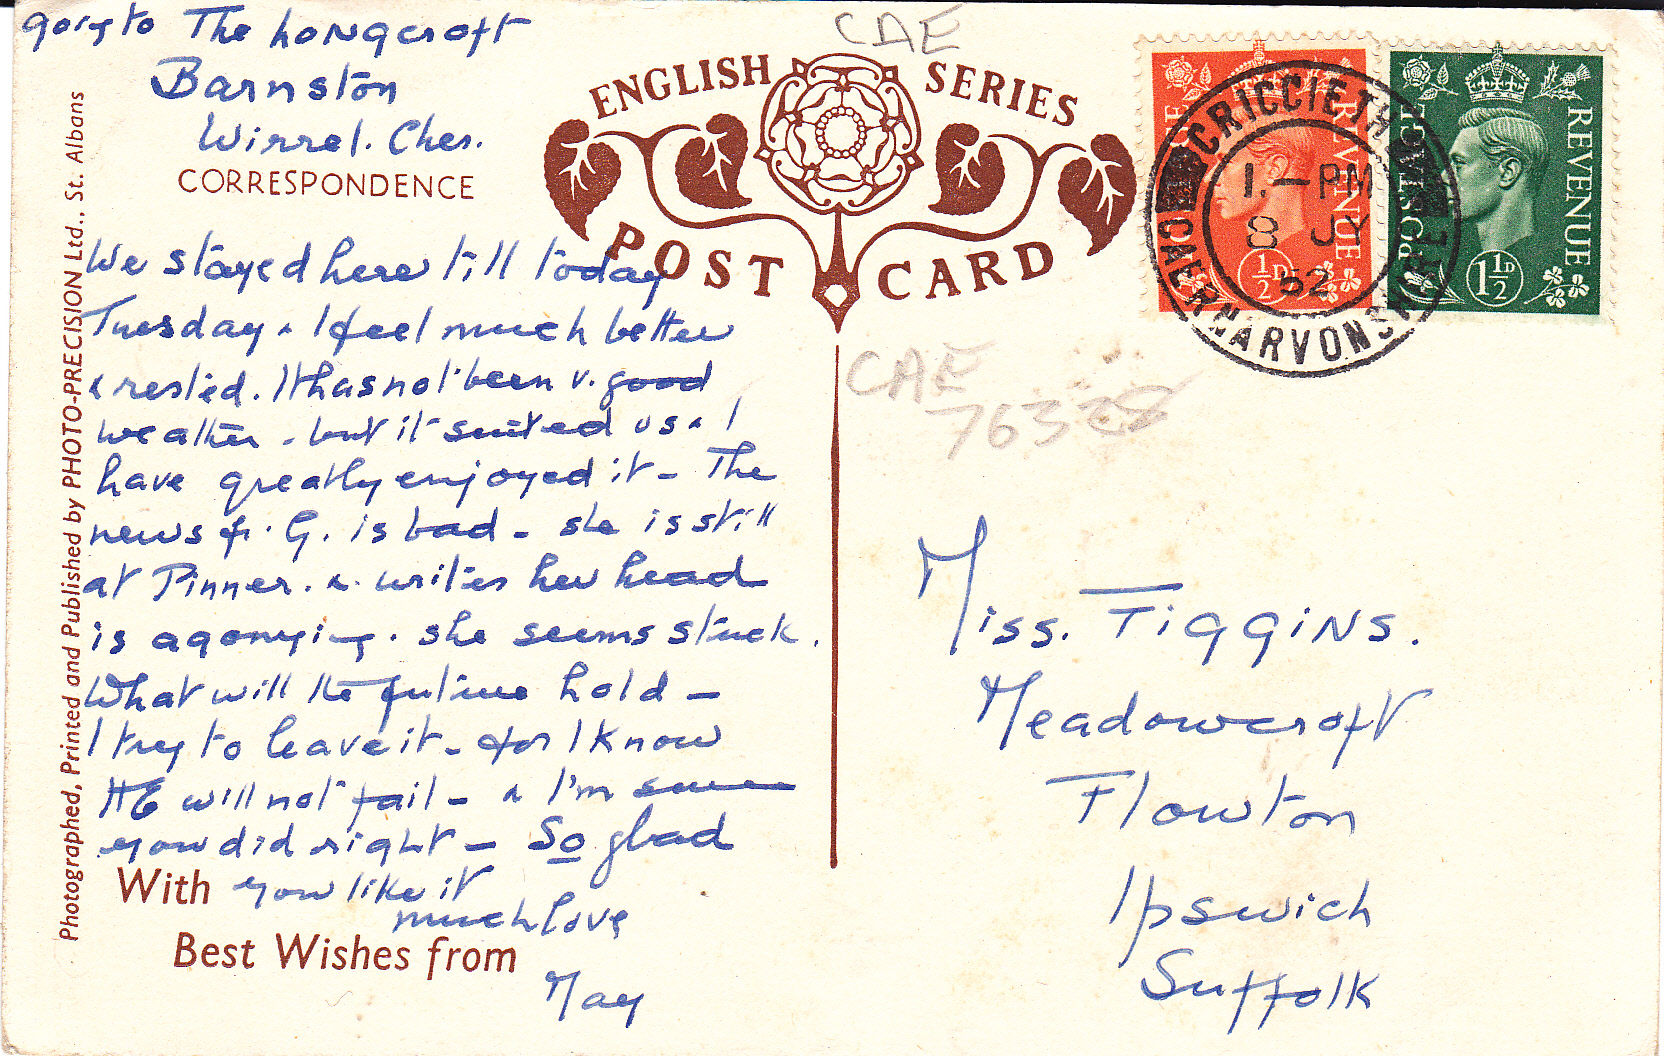 going to The Longcroft
Barnston
Wirrel. Ches.
CORRESPONDENCE
We stayed here till today
Tuesday & I feel much better
& rested. It has not been v. good
weather - but it suited us & I
have greatly enjoyed it - The
news fr. G. is bad - she is still
at Pinner. & writes her head
is agonying. she seems stuck.
What will the future hold -
I try to leave it - for I know
HE will not fail - & I'm sure
you did right - So glad
With you like it
much love
Best Wishes from
May
Photographed, Printed and Published by PHOTO-PRECISION Ltd., St. Albans
CAE
ENGLISH SERIES
POST CARD
CAE
763
REVENUE
1/2D
POSTAGE REVENUE
1 1/2D
CRICCIETH
1.-PM
8 JY
52
CAERNARVONSHIRE
Miss. TIGGINS.
Meadowcroft
Flowton
Ipswich
Suffolk